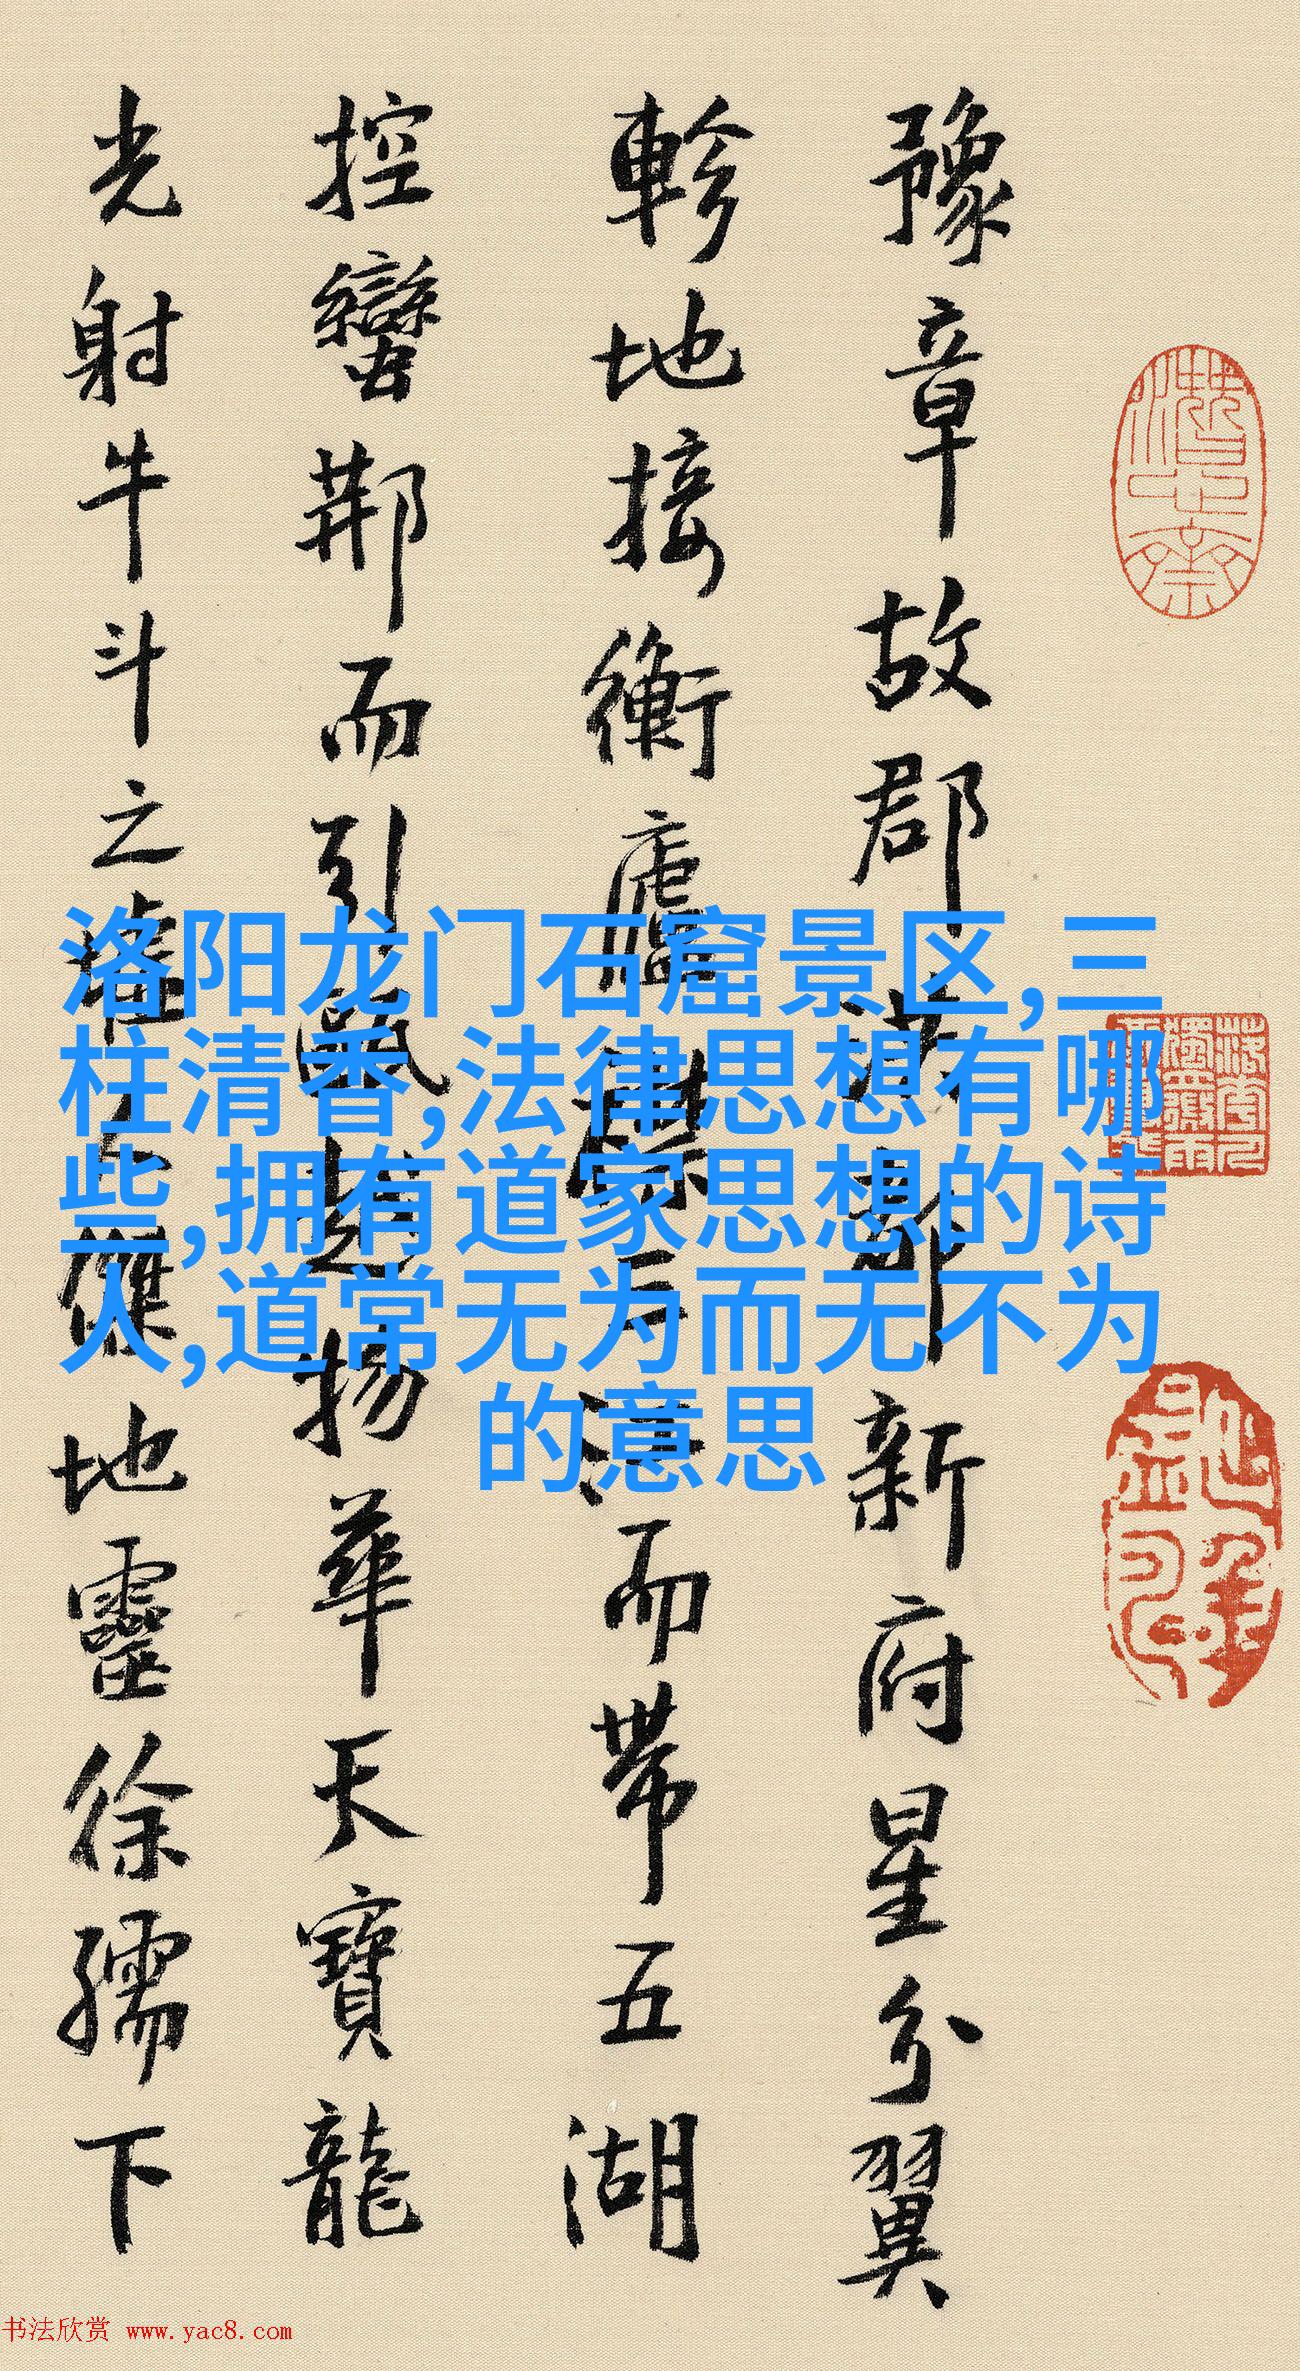 豫章故郡洪都新府星分翼
軫地接衡廬襟三江而帶五湖
控蠻荆而引甌越物華天寶龍
光射牛斗之墟人傑地靈徐孺下
洛阳龙门石窟景区,三
柱清香,法律思想有哪
些,拥有道家思想的诗
人,道常无为而无不为
的意思
书法欣赏 www.yac8.com